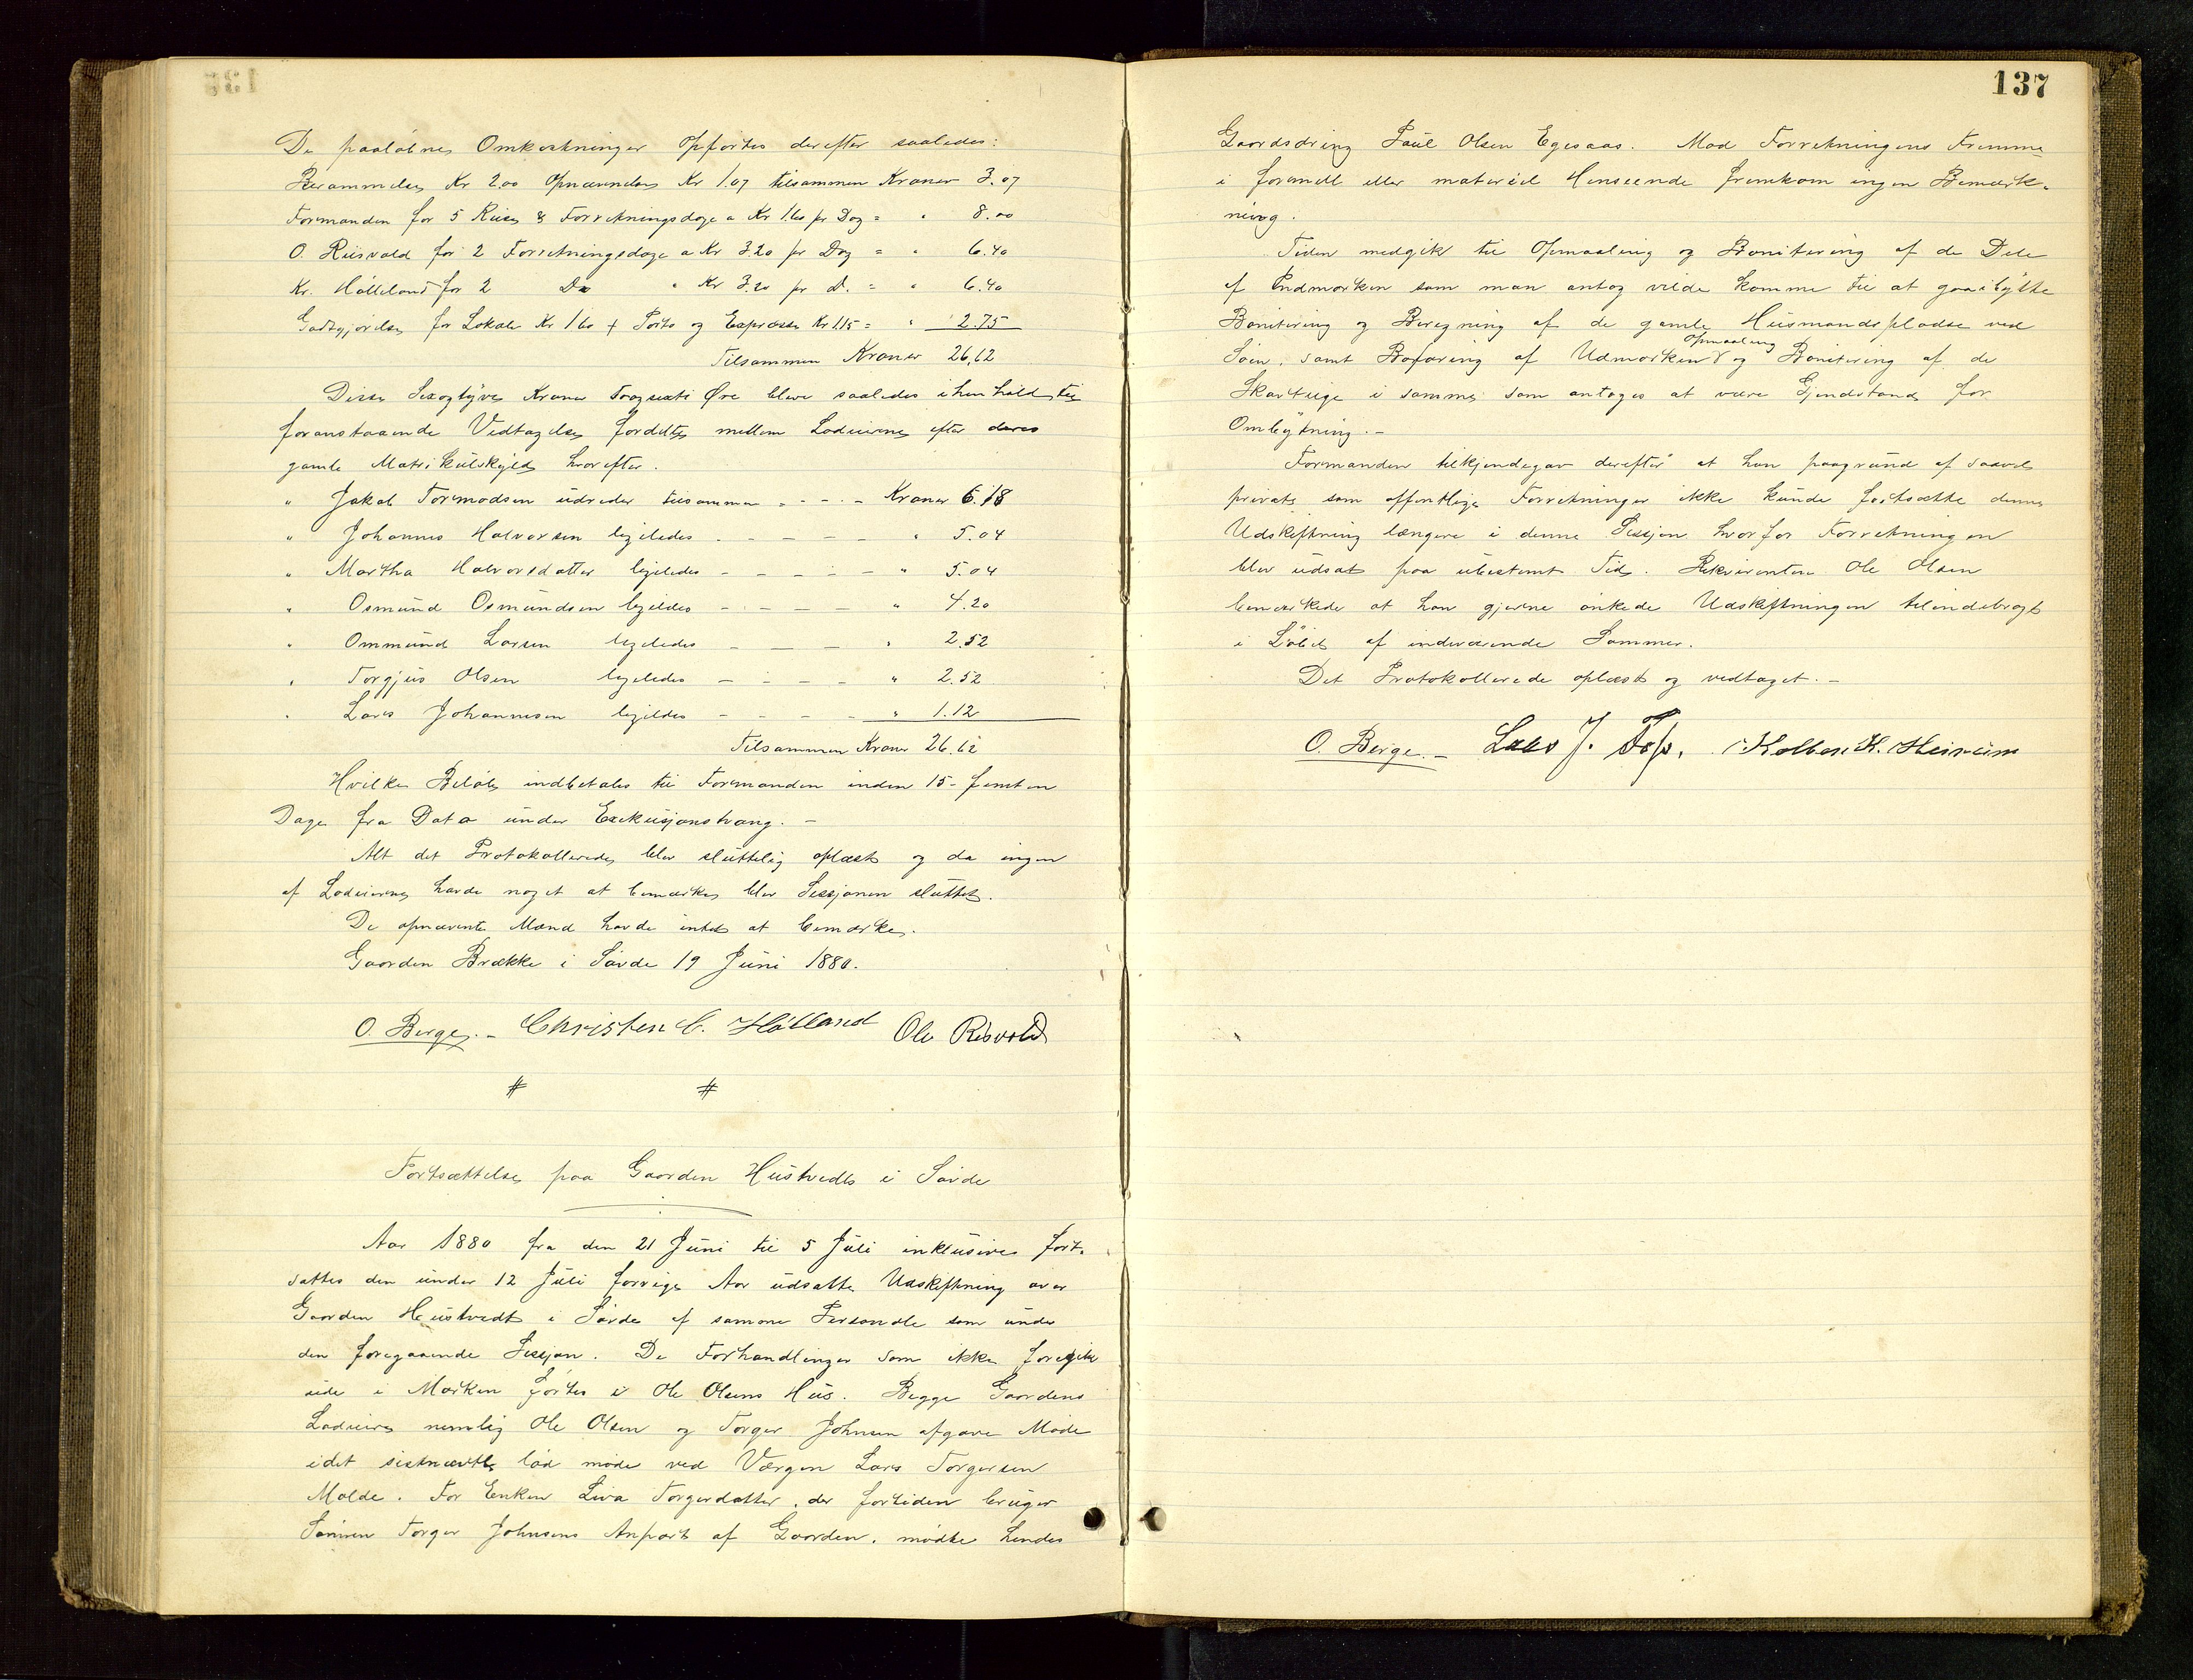 De paaløbne Omkostninger opførtes derefter saaledes:
Berammelse Kr 2.00 Opnævnelse Kr 1.07 tilsammen Kroner 3.07
Formanden for 5 Reise & Forretningsdage a Kr 1.60 pr Dag = " 8.00
O. Riisvold for 2 Forretningsdage a Kr 3.20 pr Dag = " 6.40
Kr. Hølleland for 2 Do " Kr 3.20 pr D. = " 6.40
Godtgjørelse for Lokale Kr 1.60 + Porto og Expresse Kr 1.15 = " 2.75
Tilsammen Kroner 26,62
Disse Sexogtyve Kroner Toogsexti Øre bleve saaledes i henhold til
foranstaaende Vedtagelse fordelte mellem Lodeierne efter deres
gamle Matrikulskyld hvorefter.
" Jakob Tormodsen udreder tilsammen - - - Kroner 6.18
" Johannes Halvorsen ligeledes - - - - - " 5.04
" Martha Halvorsdatter ligeledes - - - - - " 5.04
" Osmund Osmundsen ligeledes - - - - " 4.20
" Ommund Larsen ligeledes - - - " 2.52
" Torgjus Olsen ligeledes - - - - " 2.52
" Lars Johannesen ligeledes - - - - " 1.12
Tilsammen Kroner 26.62
Hvilke Beløb indbetales til Formanden inden 15 - femten
Dage fra Dato under Exekusjonstvang. -
Alt det Protokollerede blev sluttelig oplæst og da ingen
af Lodeierne havde noget at bemærke blev Sessjonen sluttet.
De opnævnte Mænd havde intet at bemærke.
Gaarden Brække i Søvde 19 Juni 1880.
O. Berge. - Christen C. Hølland Ole Risvold
# #
Fortsættelse paa Gaarden Hustvedt i Søvde
Aar 1880 fra den 21 Juni til 5 Juli inklusive fort-
sattes den under 12 Juli forrige Aar udsatte Udskiftning over
Gaarden Hustvedt i Søvde af samme Personale som under
den foregaaende Sessjon. De Forhandlinger som ikke foregik
ude i Marken førtes i Ole Olsens Hus. Begge Gaardens
Lodeiere nemlig Ole Olsen og Torger Johnsen afgave Møde
idet sistnævnte lod møde ved Værgen Lars Torgersen
Molde. For Enken Siva Torgersdatter, der fortiden bruger
Sønnen Torger Johnsens Anpart af Gaarden, mødte hendes
137
Gaardsdreng Paul Olsen Egesaas. Mod Forretningens Fremme
i formell eller materiel Henseende fremkom ingen Bemærk-
ning.
Tiden medgik til Opmaaling og Bonitering af de Dele
af Indmarken som man antog vilde komme til at gaa i bytte
Bonitering og Beregning af de gamle Husmandspladse ved
Søen, samt Befaring af Udmarken og Opmaaling Bonitering af de
Skovteige i samme som antoges at være Gjenstand for
Ombytning. -
Formanden tilkjendegav derefter at han paagrund af saavel
private som offentlige Forretninger ikke kunde fortsætte denne
Udskiftning længere i denne Sessjon hvorfor Forretningen
blev udsat paa ubestemt Tid. Rekvirenten Ole Olsen
bemærkede at han gjerne ønskede Udskiftningen tilendebragt
i Løbet af indeværende Sommer.
Det Protokollerede oplæst og vedtaget. -
O. Berge. - Lars J. Kolben K.